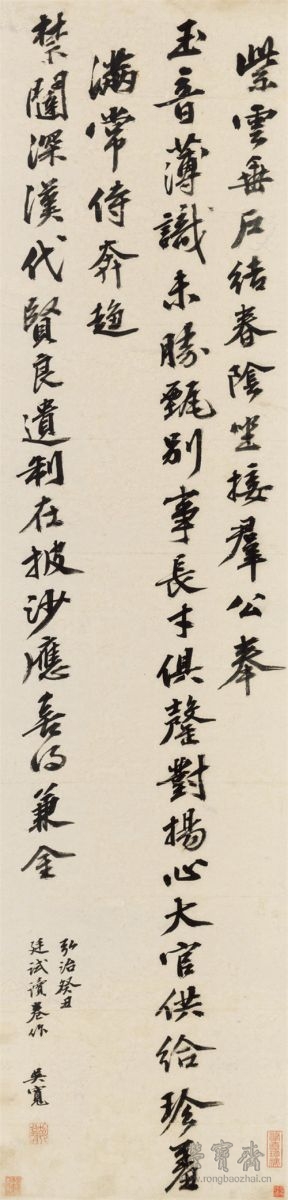 紫雲垂戶結春陰坐接羣公奉
玉音薄識未勝甄別事長才俱罄對揚心大官供給珍羞
滿常侍奔趨
禁闥深漢代賢良遺制在披沙應喜得兼金
弘治癸丑
廷試讀卷作 吳寬
榮寶齋
www.rongbaozhai.cn